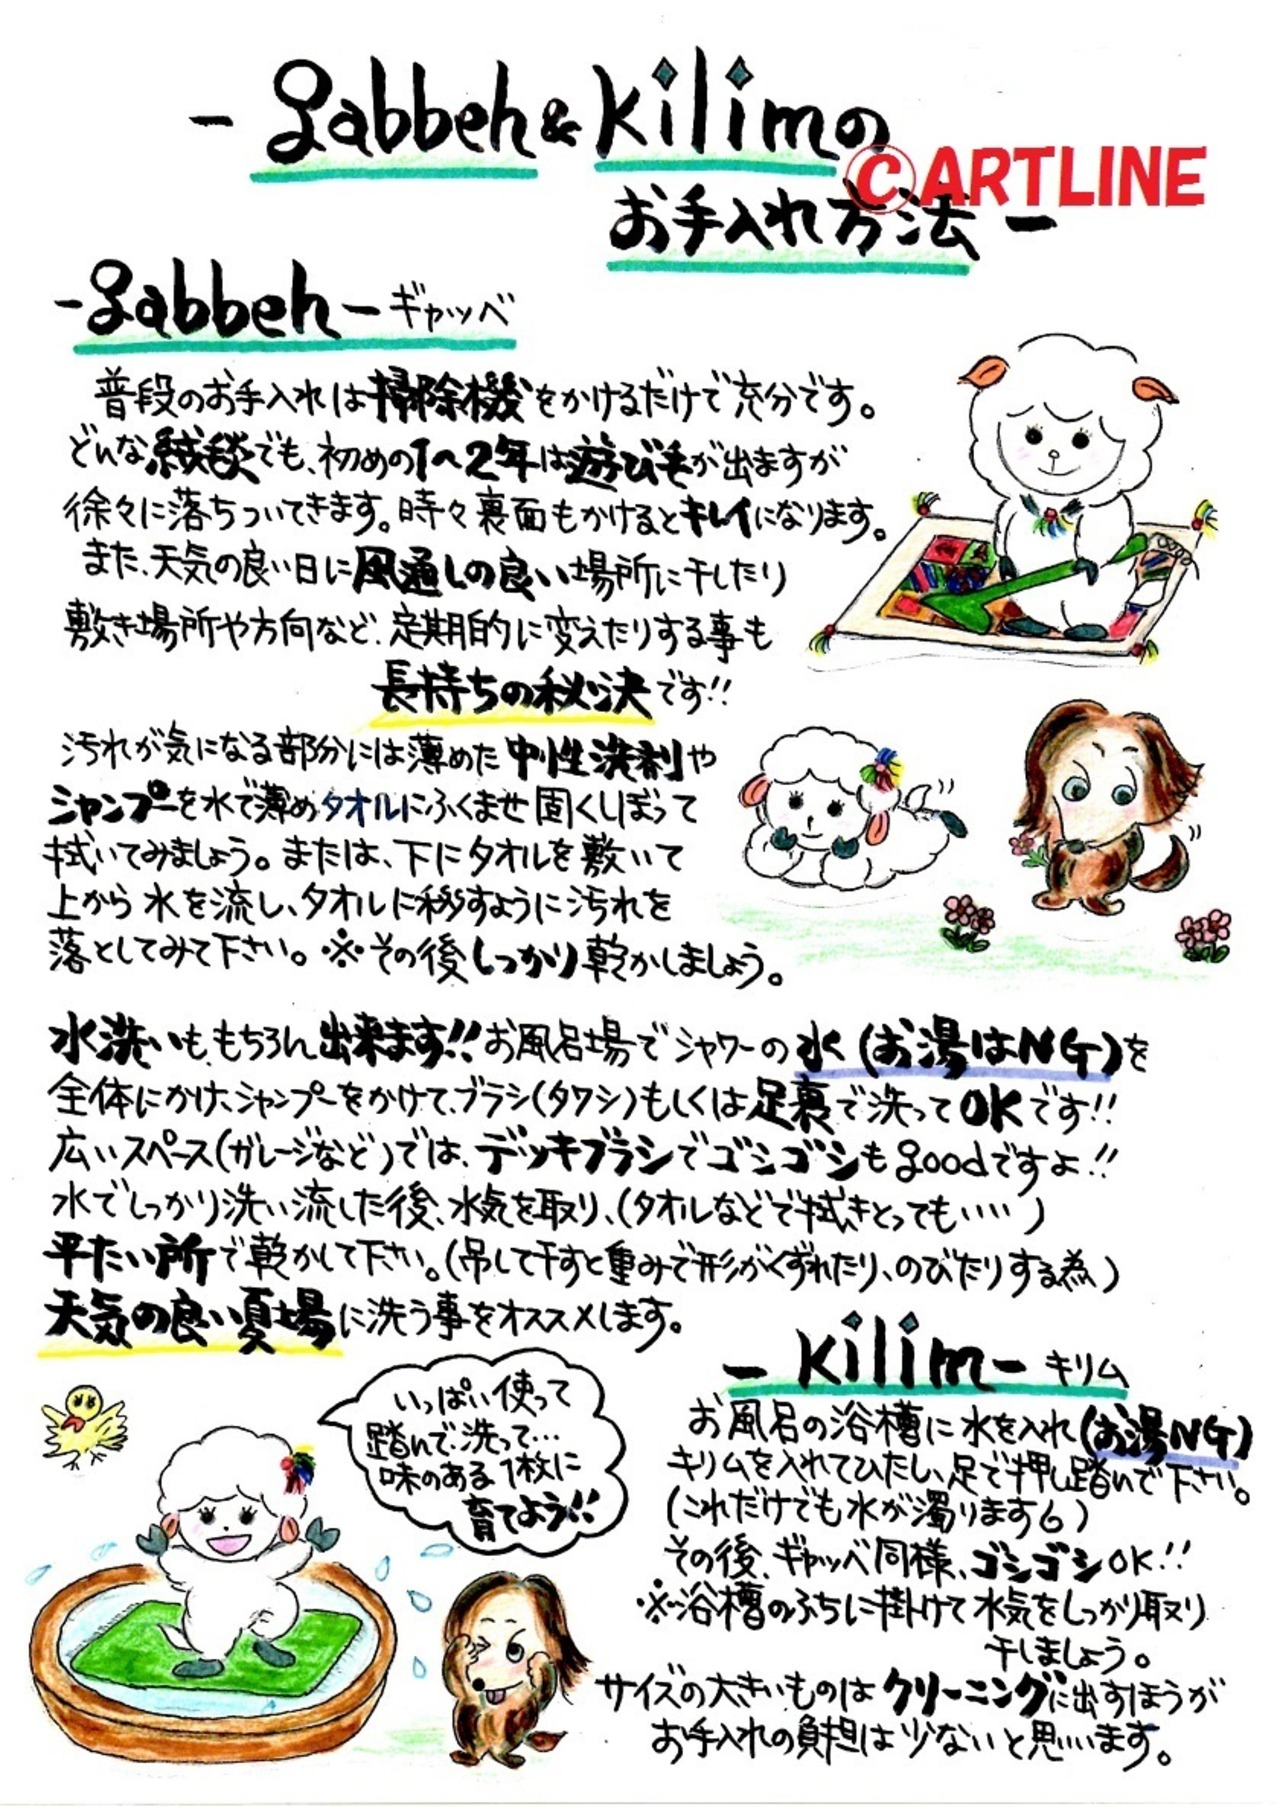 - gabbeh & kilimの
©ARTLINE
お手入れ方法 -
- gabbeh - ギャッベ
普段のお手入れは掃除機をかけるだけで充分です。
どんな絨毯でも、初めの1~2年は遊び毛が出ますが
徐々に落ちついてきます。時々裏面もかけるとキレイになります。
また、天気の良い日に風通しの良い場所に干したり
敷き場所や方向など、定期的に変えたりする事も
長持ちの秘決です!!
汚れが気になる部分には薄めた中性洗剤や
シャンプーを水で薄めタオルにふくませ固くしぼって
拭いてみましょう。または、下にタオルを敷いて
上から水を流し、タオルに移すように汚れを
落としてみて下さい。※その後しっかり乾かしましょう。
水洗いも、もちろん出来ます!!お風呂場でシャワーの水(お湯はNG)を
全体にかけ、シャンプーをかけて、ブラシ(タワシ)もしくは足裏で洗ってOKです!!
広いスペース(ガレージなど)では、デッキブラシでゴシゴシもgoodですよ!!
水でしっかり洗い流した後、水気を取り、(タオルなどで拭きとっても‥‥)
平たい所で乾かして下さい。(吊して干すと重みで形がくずれたり、のびたりする為)
天気の良い夏場に洗う事をオススメします。
いっぱい使って
踏んで洗って…
味のある1枚に
育てよう!!
- kilim - キリム
お風呂の浴槽に水を入れ(お湯NG)
キリムを入れてひたし、足で押し踏んで下さい。
(これだけでも水が濁ります)
その後、ギャッベ同様、ゴシゴシOK!!
※浴槽のふちに掛けて水気をしっかり取り
干しましょう。
サイズの大きいものはクリーニングに出すほうが
お手入れの負担は少ないと思います。